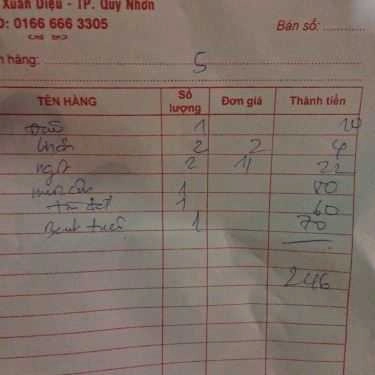 Xuân Diệu - TP. Quy Nhơn
0166 666 3305
Bán số:
hàng: 5
TÊN HÀNG Số lượng Đơn giá Thành tiền
1 10
khăn 2 2 4
ngọt 2 11 22
1 80
1 60
Bánh tráng 1 70
246